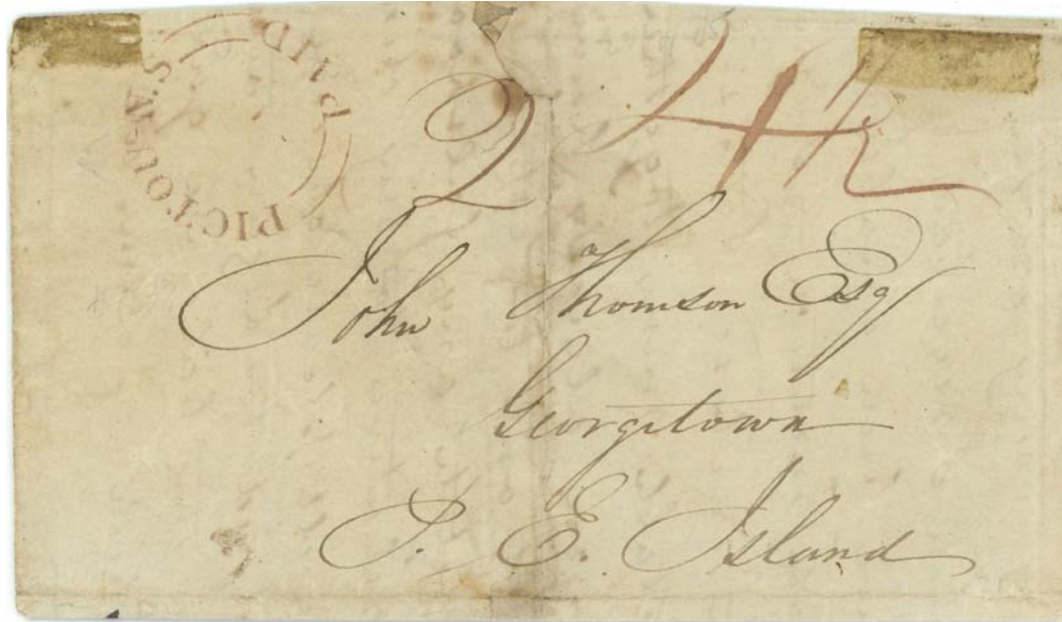 PAID
PICTOU N.S.
2 4½
John Thomson Esq
Georgetown
P. E. Island